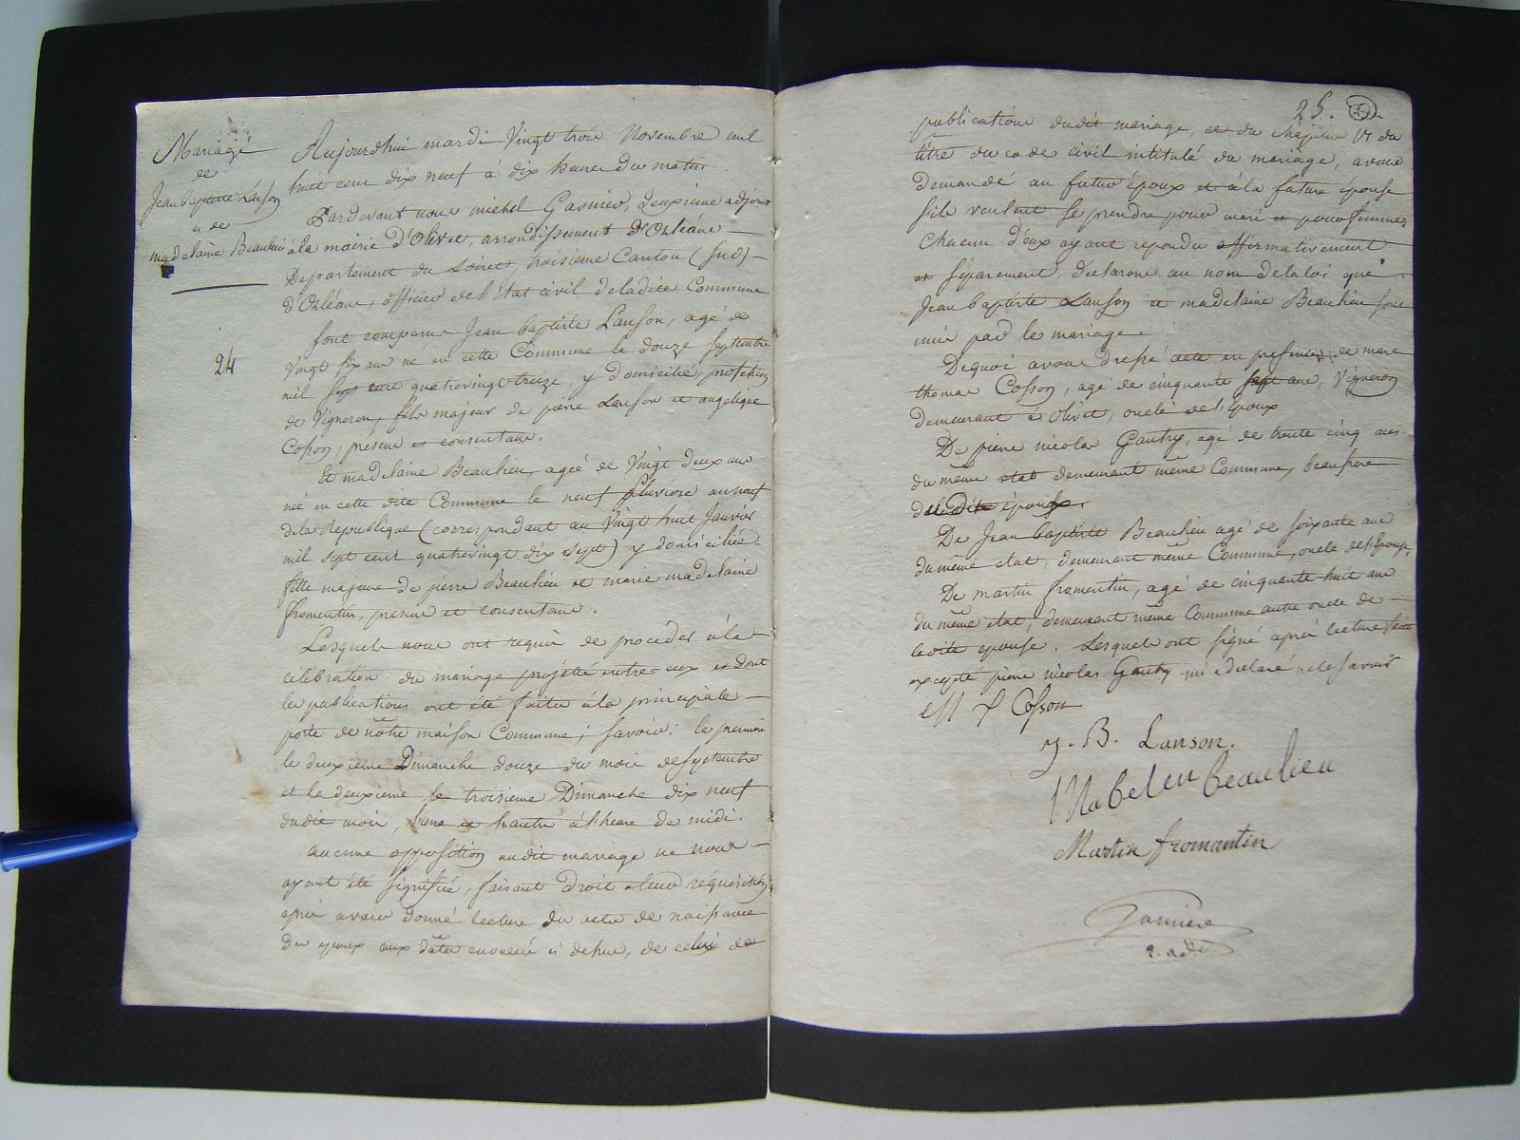 Mariage
de
Jean baptiste Lanson
et de
madelaine Beaulieu
24
Aujourdhui mardi Vingt trois Novembre mil
huit cent dix neuf à dix heures du matin
Pardevant nous michel Gasnier, deuxieme adjoint
à la mairie d'Olivet, arrondissement d'Orléans
Departement du Loiret, troisieme Canton (sud)
d'Orléans, officier de l'état civil de ladite Commune
sont comparus Jean baptiste Lanson, agé de
Vingt six ans né en cette Commune le douze septembre
mil sept cent quatrevingt treize, y domicilié, profession
de Vigneron, fils majeur de pierre Lanson et angelique
Cosson, present et consentans.
Et madelaine Beaulieu, agée de Vingt deux ans
née en cette dite Commune le neuf pluviose an cinq
de la Republique (correspondant au Vingt huit Janvier
mil sept cent quatrevingt dix sept) y domiciliée
fille majeure de pierre Beaulieu et marie madelaine
fromentin, present et consentans.
Lesquels nous ont requis de proceder à la
célébration du mariage projetté entre eux et dont
les publications ont été faites à la principale
porte de nôtre maison Commune; savoir: la premiere
le deuxieme Dimanche douze du mois de septembre
et la deuxieme le troisieme Dimanche dix neuf
dudit mois, à l'heure de midi.
aucune opposition audit mariage ne nous
ayant été signifiée, faisant droit à leur réquisition
après avoir donné lecture des actes de naissance
des epoux aux dattes enoncées ci dessus, de celui de
25.
publications dudit mariage, et du chapitre VI du
titre du code civil intitulé du mariage, avons
demandé au futur époux et à la future épouse
s'ils veulent se prendre pour mari et pour femme,
chacun d'eux ayant repondu affirmativement
et séparement, declarons au nom de la loi que
Jean baptiste Lanson et madelaine Beaulieu sont
unis par le mariage.
Dequoi avons dressé acte en presence de
thomas Cosson, agé de cinquante sept ans, Vigneron
demeurant à Olivet, oncle de l'époux
De pierre nicolas Gautry, agé de trente cinq ans
du même etat demeurant même Commune, beaufrere
de la dite épouse.
De Jean baptiste Beaulieu agé de soixante ans
du même etat, demeurant même Commune, oncle de l'épouse,
De martin fromentin, agé de cinquante huit ans
du même etat, demeurant même Commune autre oncle de
la dite epouse. Lesquels ont signé après lecture faite
excepté pierre nicolas Gautry qui a declaré ne le savoir
Cosson
J. B. Lanson.
beaulieu
Martin fromentin
Gasnier
2. adt